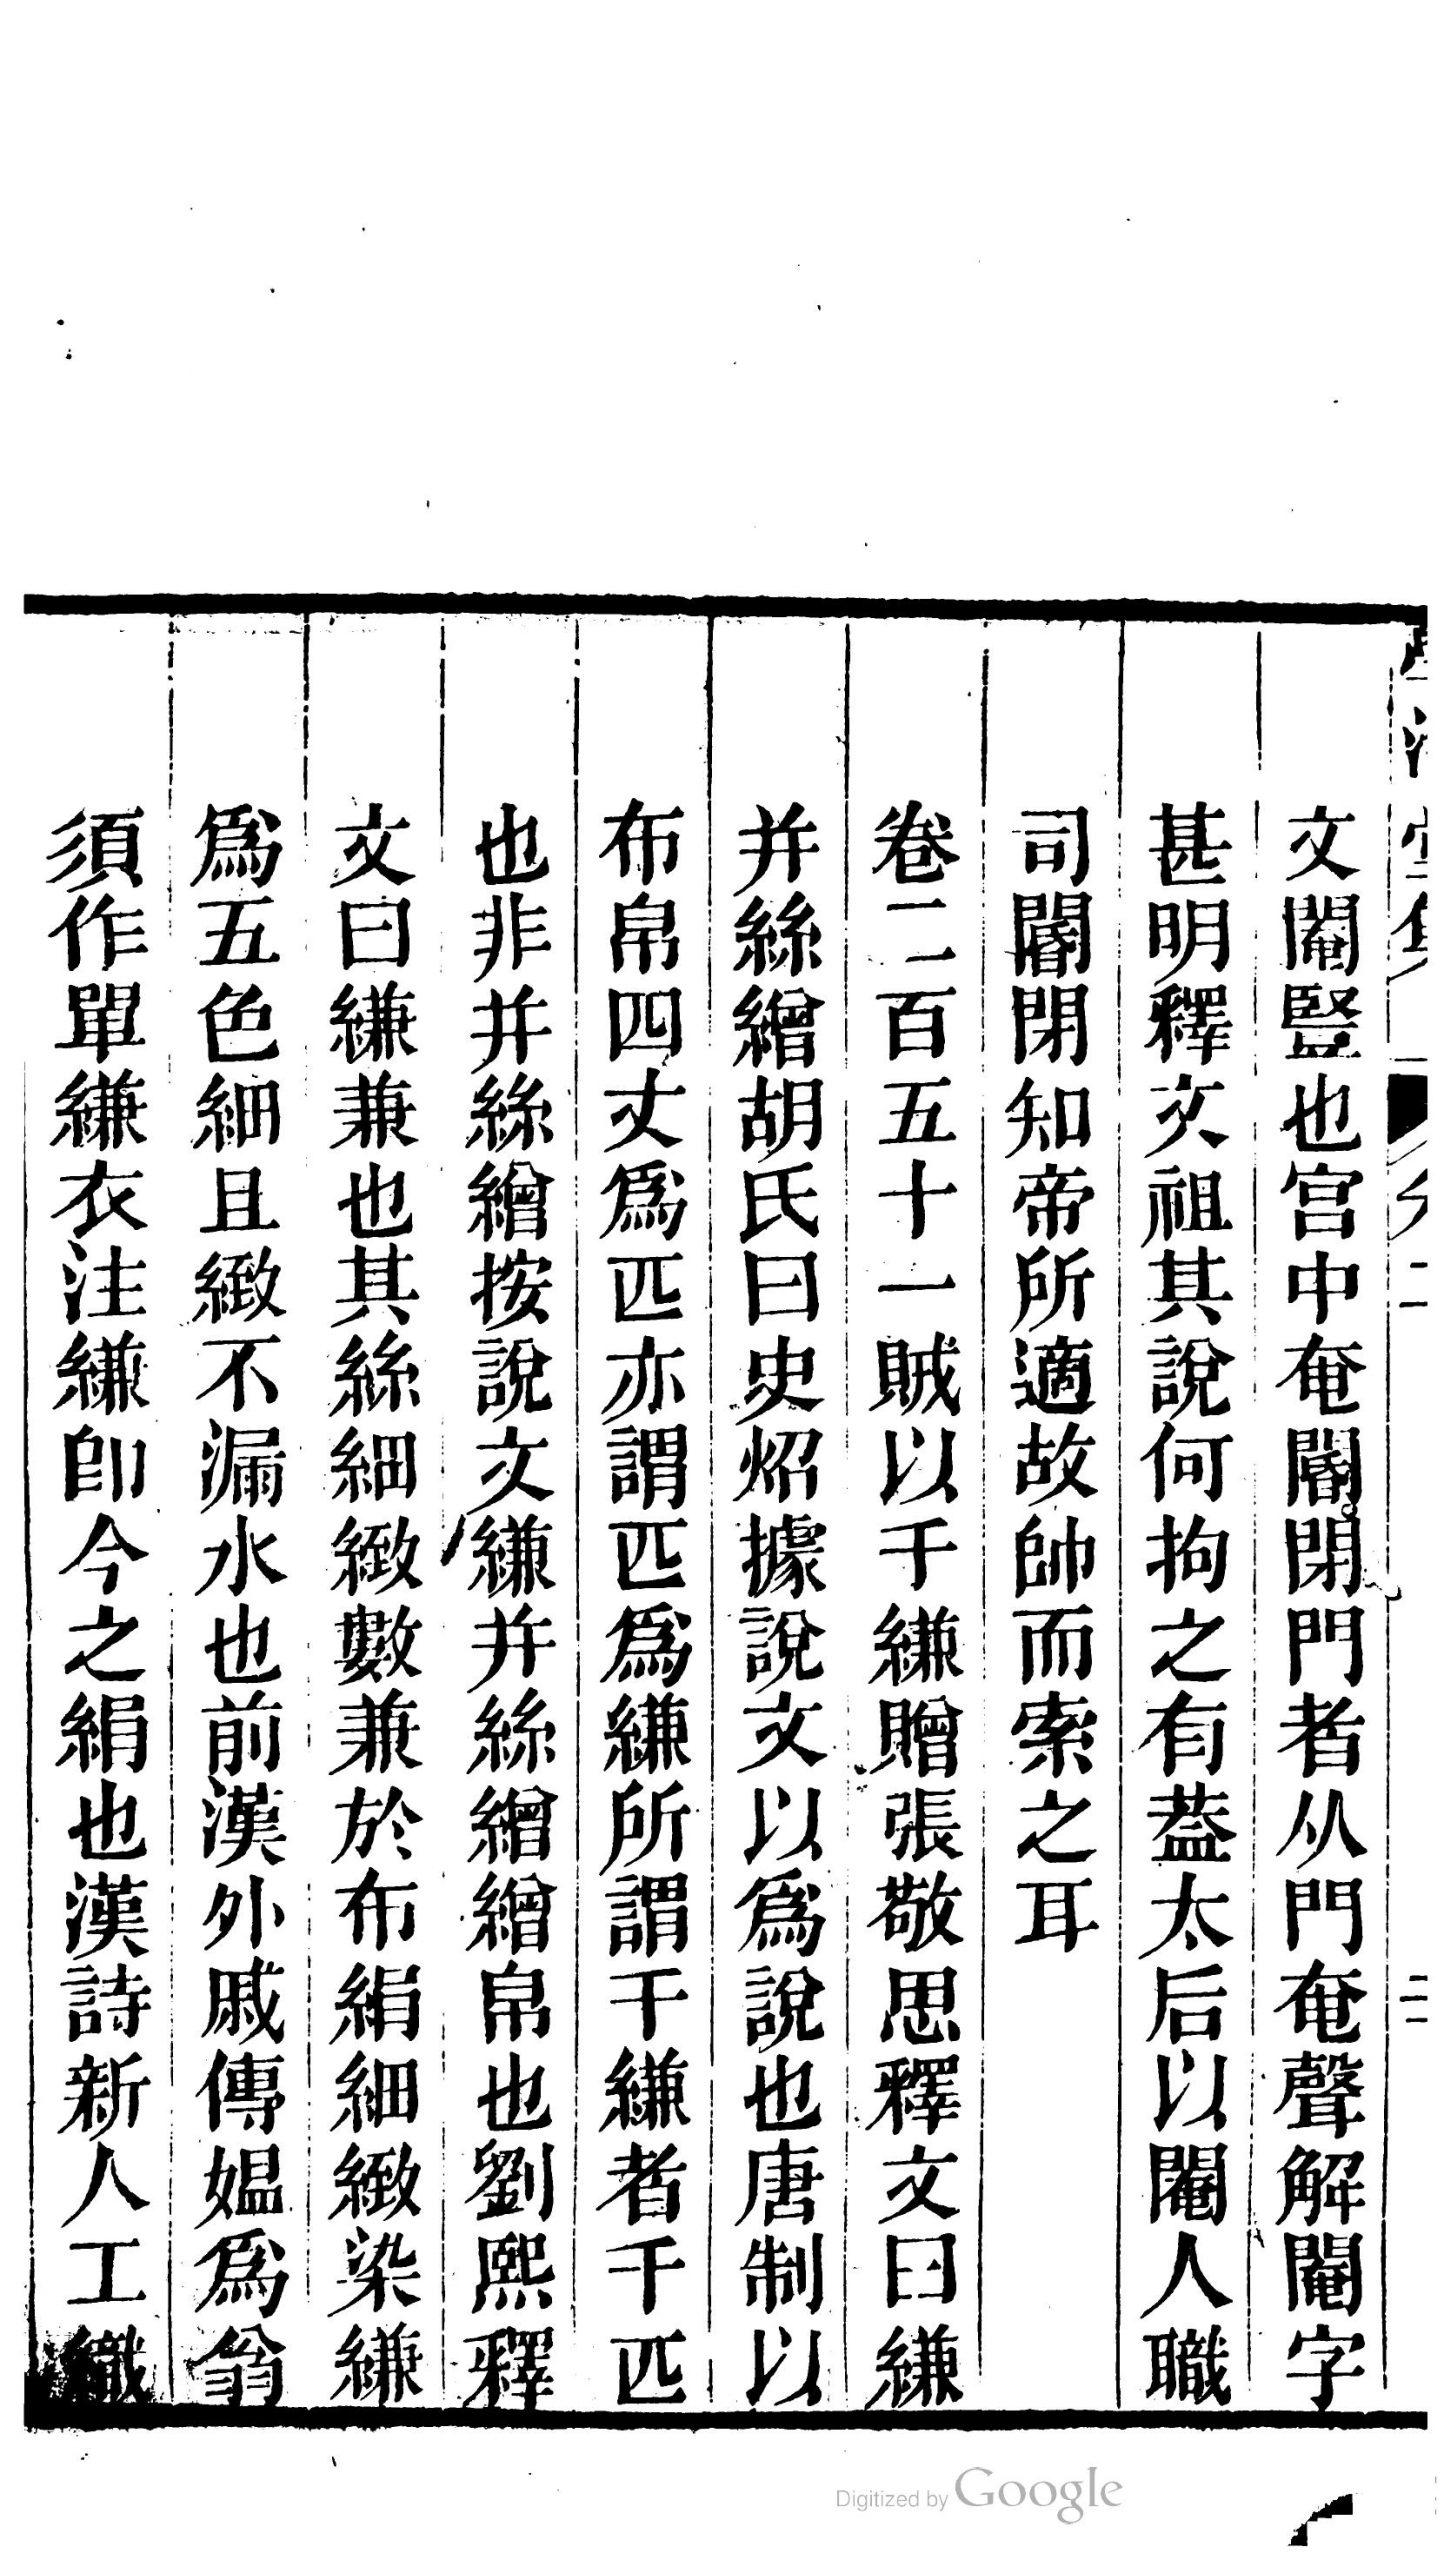 文閹豎也宫中奄閽閉門者从門奄聲解閹字
甚明釋文祖其說何拘之有葢太后以閹人職
司閽閉知帝所適故帥而索之耳
卷二百五十一賊以千縑贈張敬思釋文曰縑
并絲繒胡氏曰史炤據說文以爲說也唐制以
布帛四丈爲匹亦謂匹爲縑所謂千縑者千匹
也非并絲繒按說文縑并絲繒繒帛也劉熙釋
文曰縑兼也其絲細緻數兼於布絹細緻染縑
爲五色細且緻不漏水也前漢外戚傳媼爲翁
須作單縑衣注縑卽今之絹也漢詩新人工織
二
二
Digitized by Google